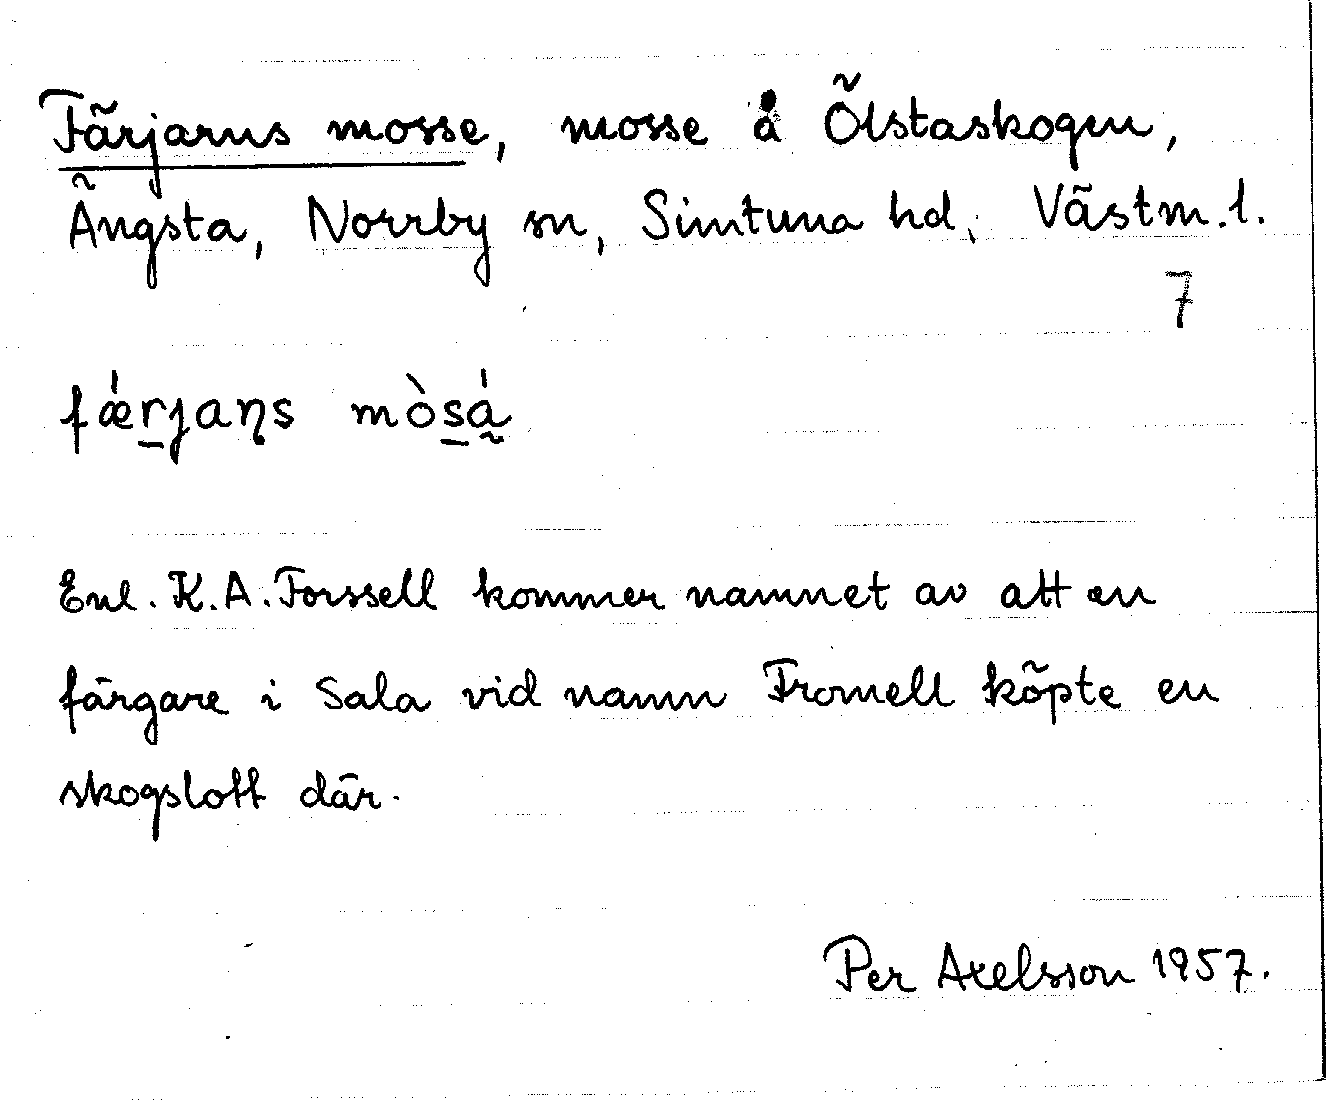 Färjarns mosse, mosse å Ölstaskogen,
Ängsta, Norrby sn, Simtuna hd, Västm. l.
7
fǽr̲jaɳs mòs̲á̰
Enl. K. A. Forssell kommer namnet av att en
färgare i Sala vid namn Fromell köpte en
skogslott där.
Per Axelsson 1957.